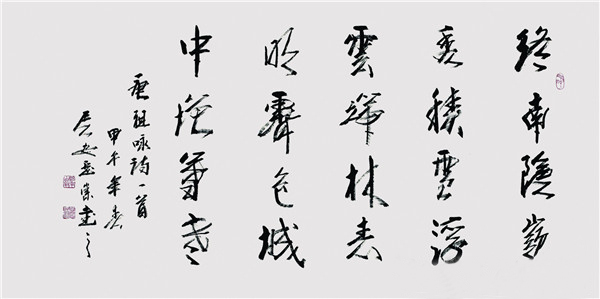 終南陰嶺
秀積雪浮
雲端林表
明霽色城
中增暮寒
唐祖咏詩一首
甲午年春